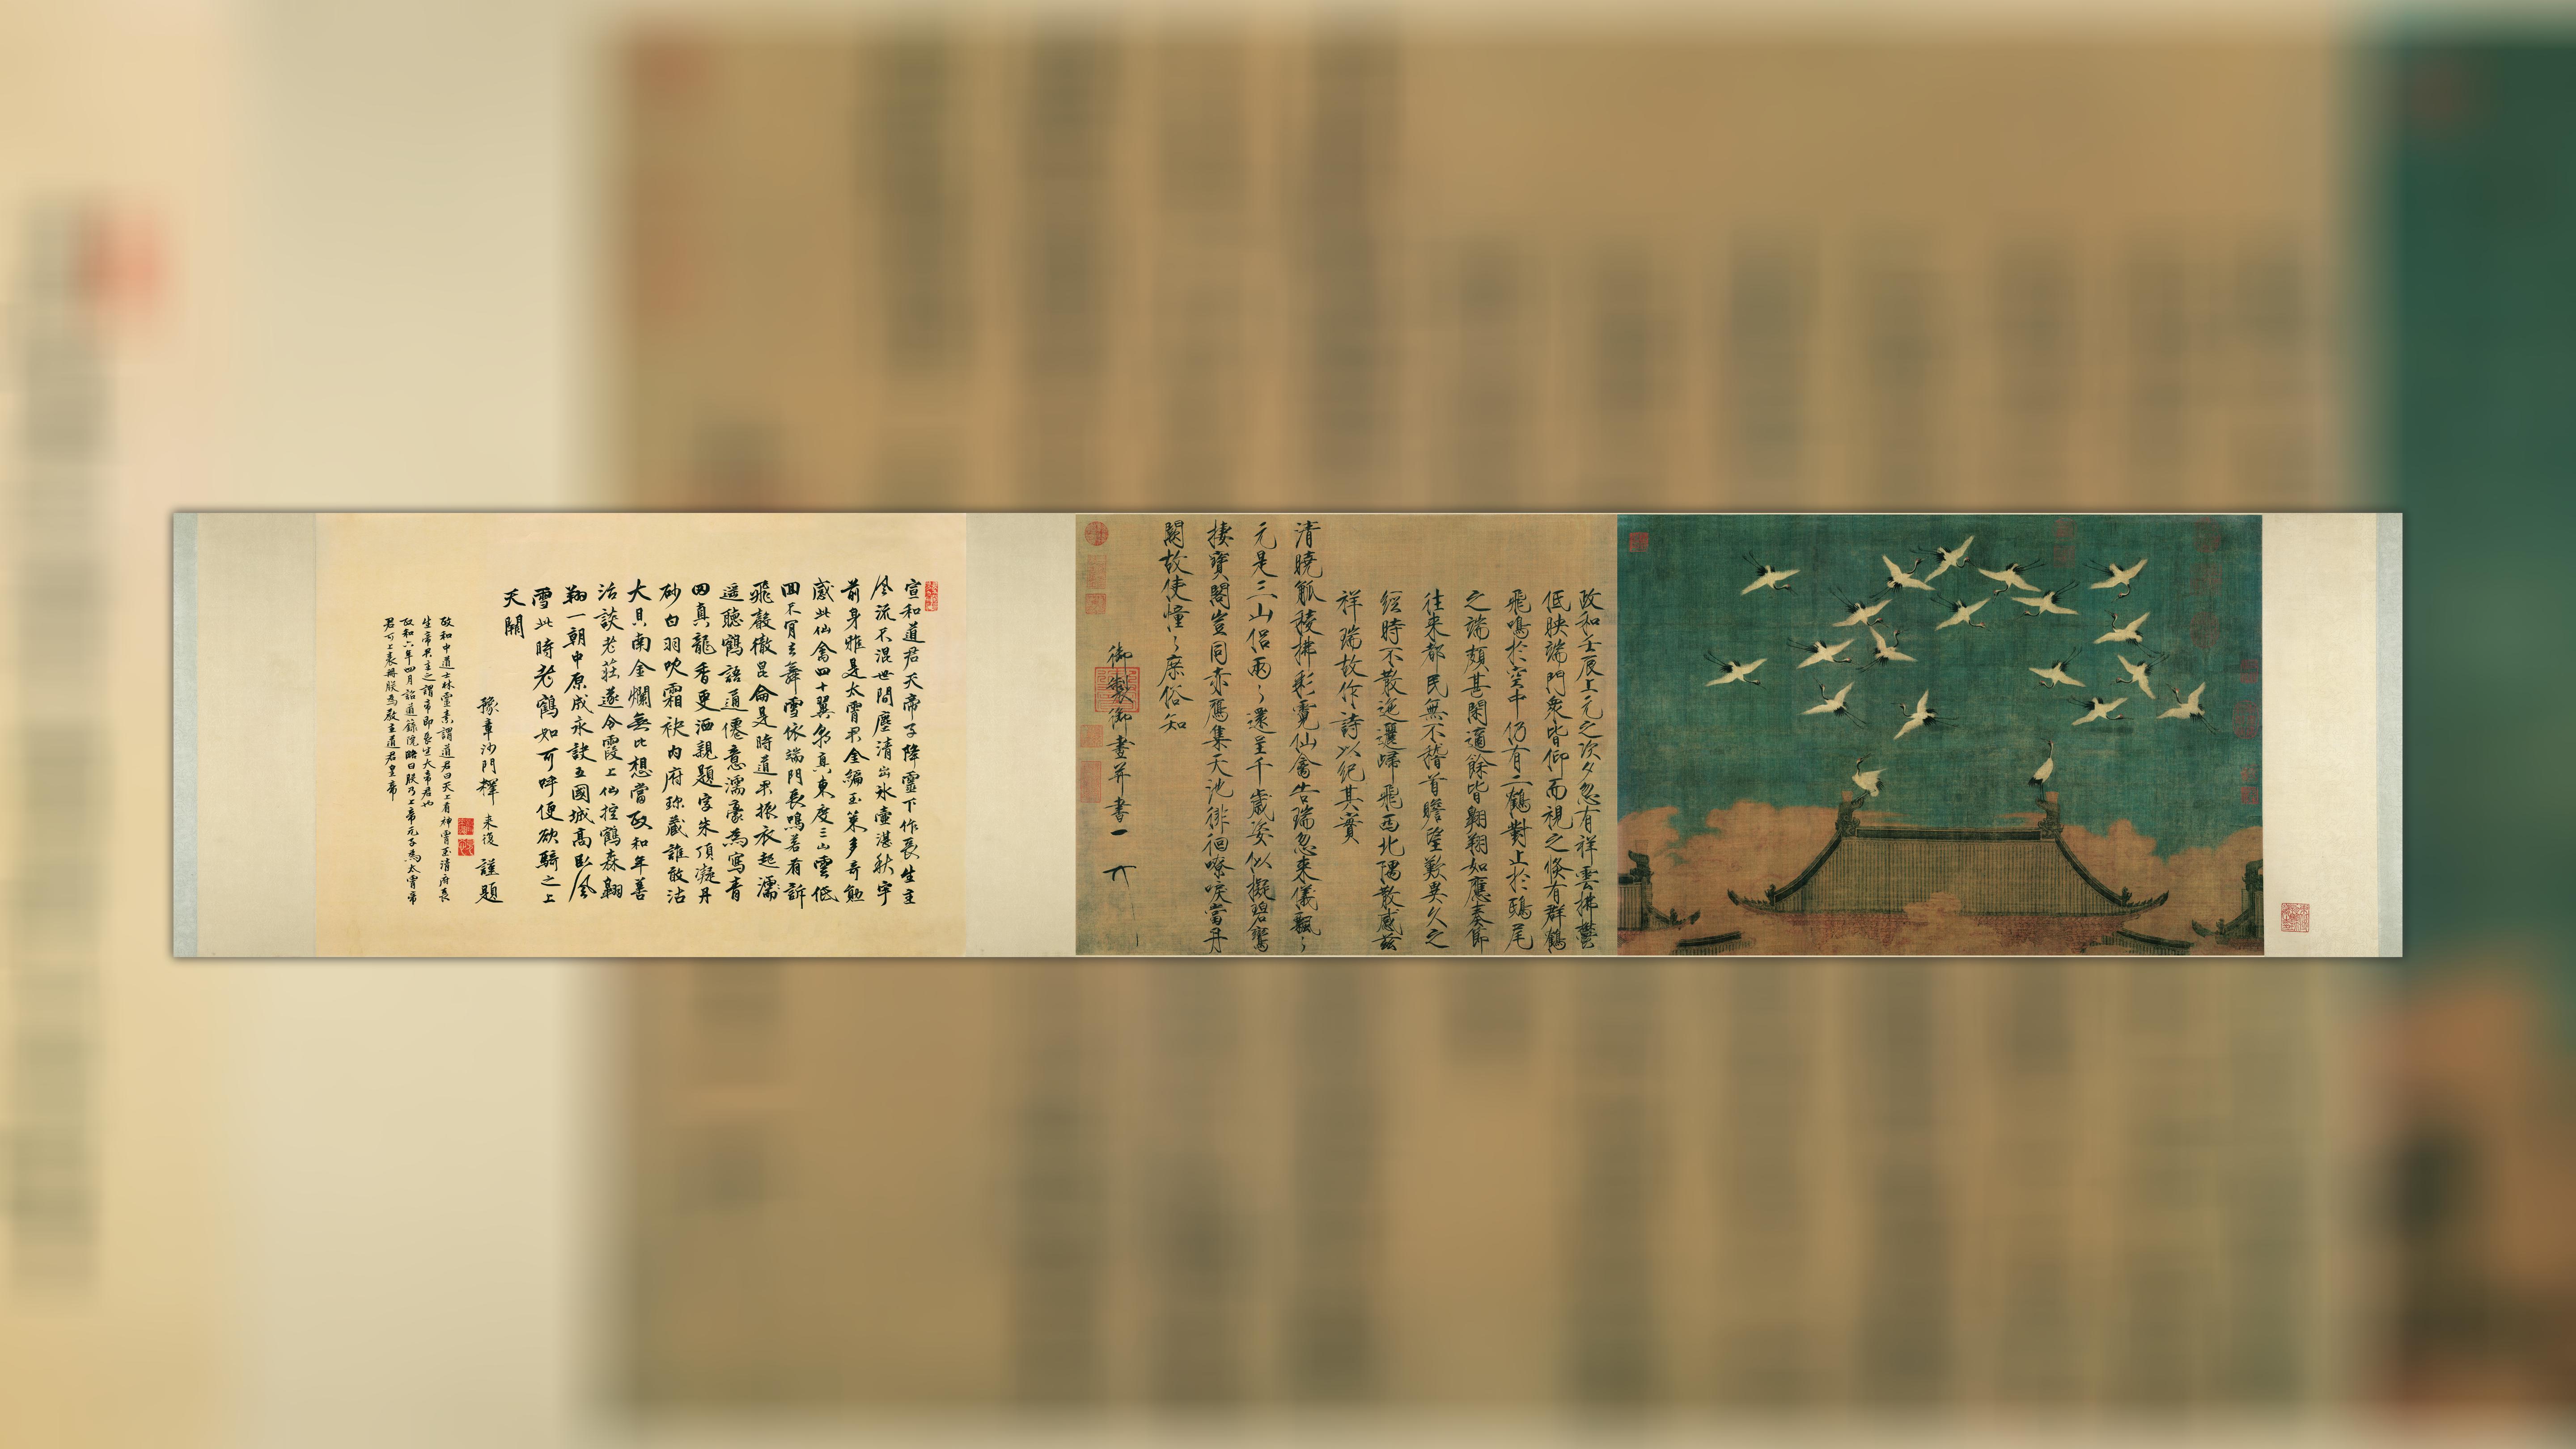 政和壬辰上元之次夕忽有祥雲拂鬱
低映端門衆皆仰而視之倐有群鶴
飛鳴於空中仍有二鶴對止於鴟尾
之端頗甚閑適餘皆翱翔如應奏節
往来都民無不稽首瞻望歎異久之
經時不散迤邐歸飛西北隅散感兹
祥瑞故作詩以紀其實
清曉觚稜拂彩霓仙禽告瑞忽来儀飄〻
元是三山侣兩〻還呈千歲姿似擬碧鸞
棲寳閣豈同赤鴈集天池徘徊嘹唳當丹
闕故使憧〻庶俗知
御製御畫并書
宣和道君天帝子降靈下作長生主
風流不混世間塵清出氷壷湛秋宇
前身雅是太霄君金編玉策多奇勉
感此仙禽四十翼朝真東度三山雲低
回不肯去舞雪依端門長鳴若有訴
飛聲徹昆侖是時道君振衣起濡
遥聽鶴語通僊意濡豪為寫青
田真龍香更洒親題字朱頂凝丹
砂白羽吹霜袂内府珎藏誰敢沽
大貝南金爛無比想當政和年善
治談老莊遂令霞上仙控鶴森翱
翔一朝中原成永訣五國城髙臥風
雪此時老鶴如可呼便欲騎之上
天關
豫章沙門釋 来復 謹題
政和中道士林靈素謂道君曰天上有神霄玉清府長
生帝君主之謂帝即長生大帝君也
政和六年四月詔道籙院略曰朕乃上帝元子為太霄帝
君可上表冊朕為教主道君皇帝